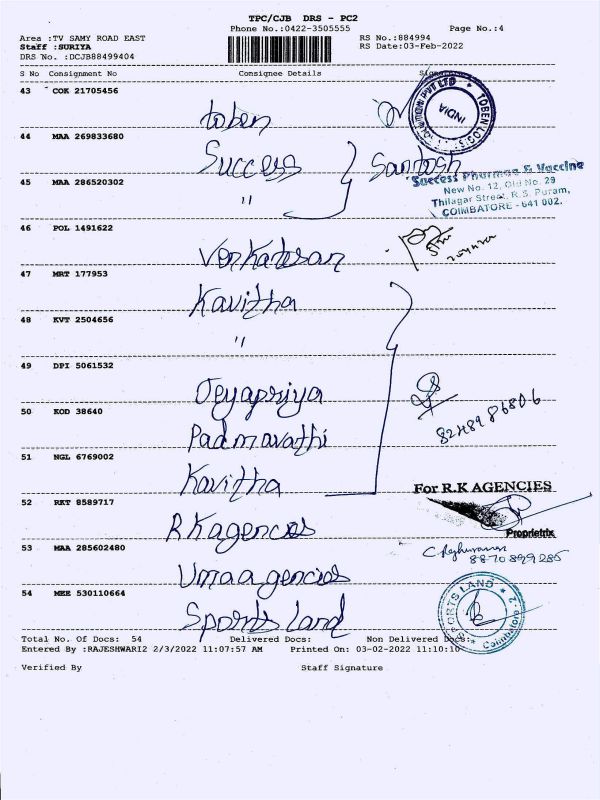 TPC/CJB DRS - PC2
Phone No.:0422-3505555 Page No.:4
Area :TV SAMY ROAD EAST RS No.:884994
Staff :SURIYA RS Date:03-Feb-2022
DRS No. :DCJB88499404
S No Consignment No Consignee Details
43 COK 21705456
toben
TOBEN LOGIS
PVT LTD
INDIA
44 MAA 269833680
Success Santosh
Success Pharma & Vaccine
New No. 12, Old No. 29
Thilagar Street, R.S. Puram,
COIMBATORE - 641 002.
45 MAA 286520302
"
46 POL 1491622
Venkatesan
47 MRT 177953
Kavitha
48 KVT 2504656
"
49 DPI 5061532
Jeyapriya
8248986806
50 KOD 38640
Padmavathi
51 NGL 6769002
Kavitha
For R.K AGENCIES
Proprietrix
52 RKT 8589717
RK agencies
8870899285
53 MAA 285602480
Uma agencies
54 MEE 530110664
Sports land
SPORTS LAND
Coimbatore - 2
Total No. Of Docs: 54 Delivered Docs: Non Delivered Docs:
Entered By :RAJESHWARI2 2/3/2022 11:07:57 AM Printed On: 03-02-2022 11:10:10
Verified By Staff Signature